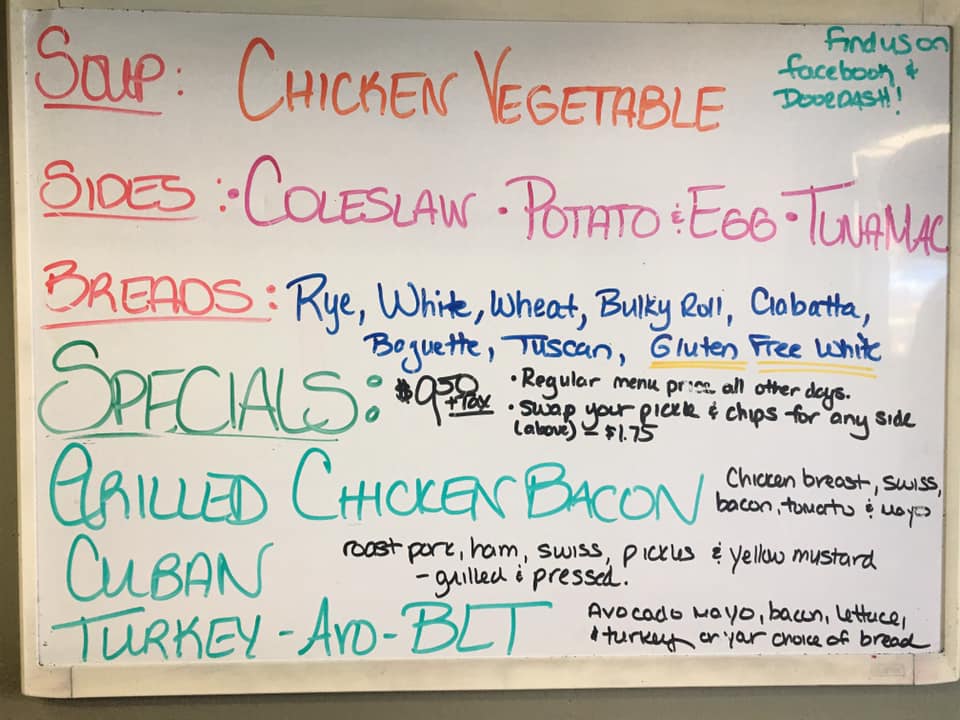 SOUP: CHICKEN VEGETABLE
find us on
facebook &
DOORDASH!
SIDES: • COLESLAW • POTATO & EGG • TUNA MAC
BREADS: Rye, White, Wheat, Bulky Roll, Ciabatta,
Baguette, Tuscan, Gluten Free White
SPECIALS: $9.50 + Tax
• Regular menu price all other days.
• Swap your pickle & chips for any side
(above) - $1.75
GRILLED CHICKEN BACON
Chicken breast, swiss,
bacon, tomato & mayo
CUBAN
roast pork, ham, swiss, pickles & yellow mustard
- grilled & pressed.
TURKEY - AVO - BLT
Avocado mayo, bacon, lettuce,
& turkey on your choice of bread